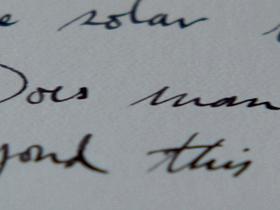 e solar
Does man
yond this